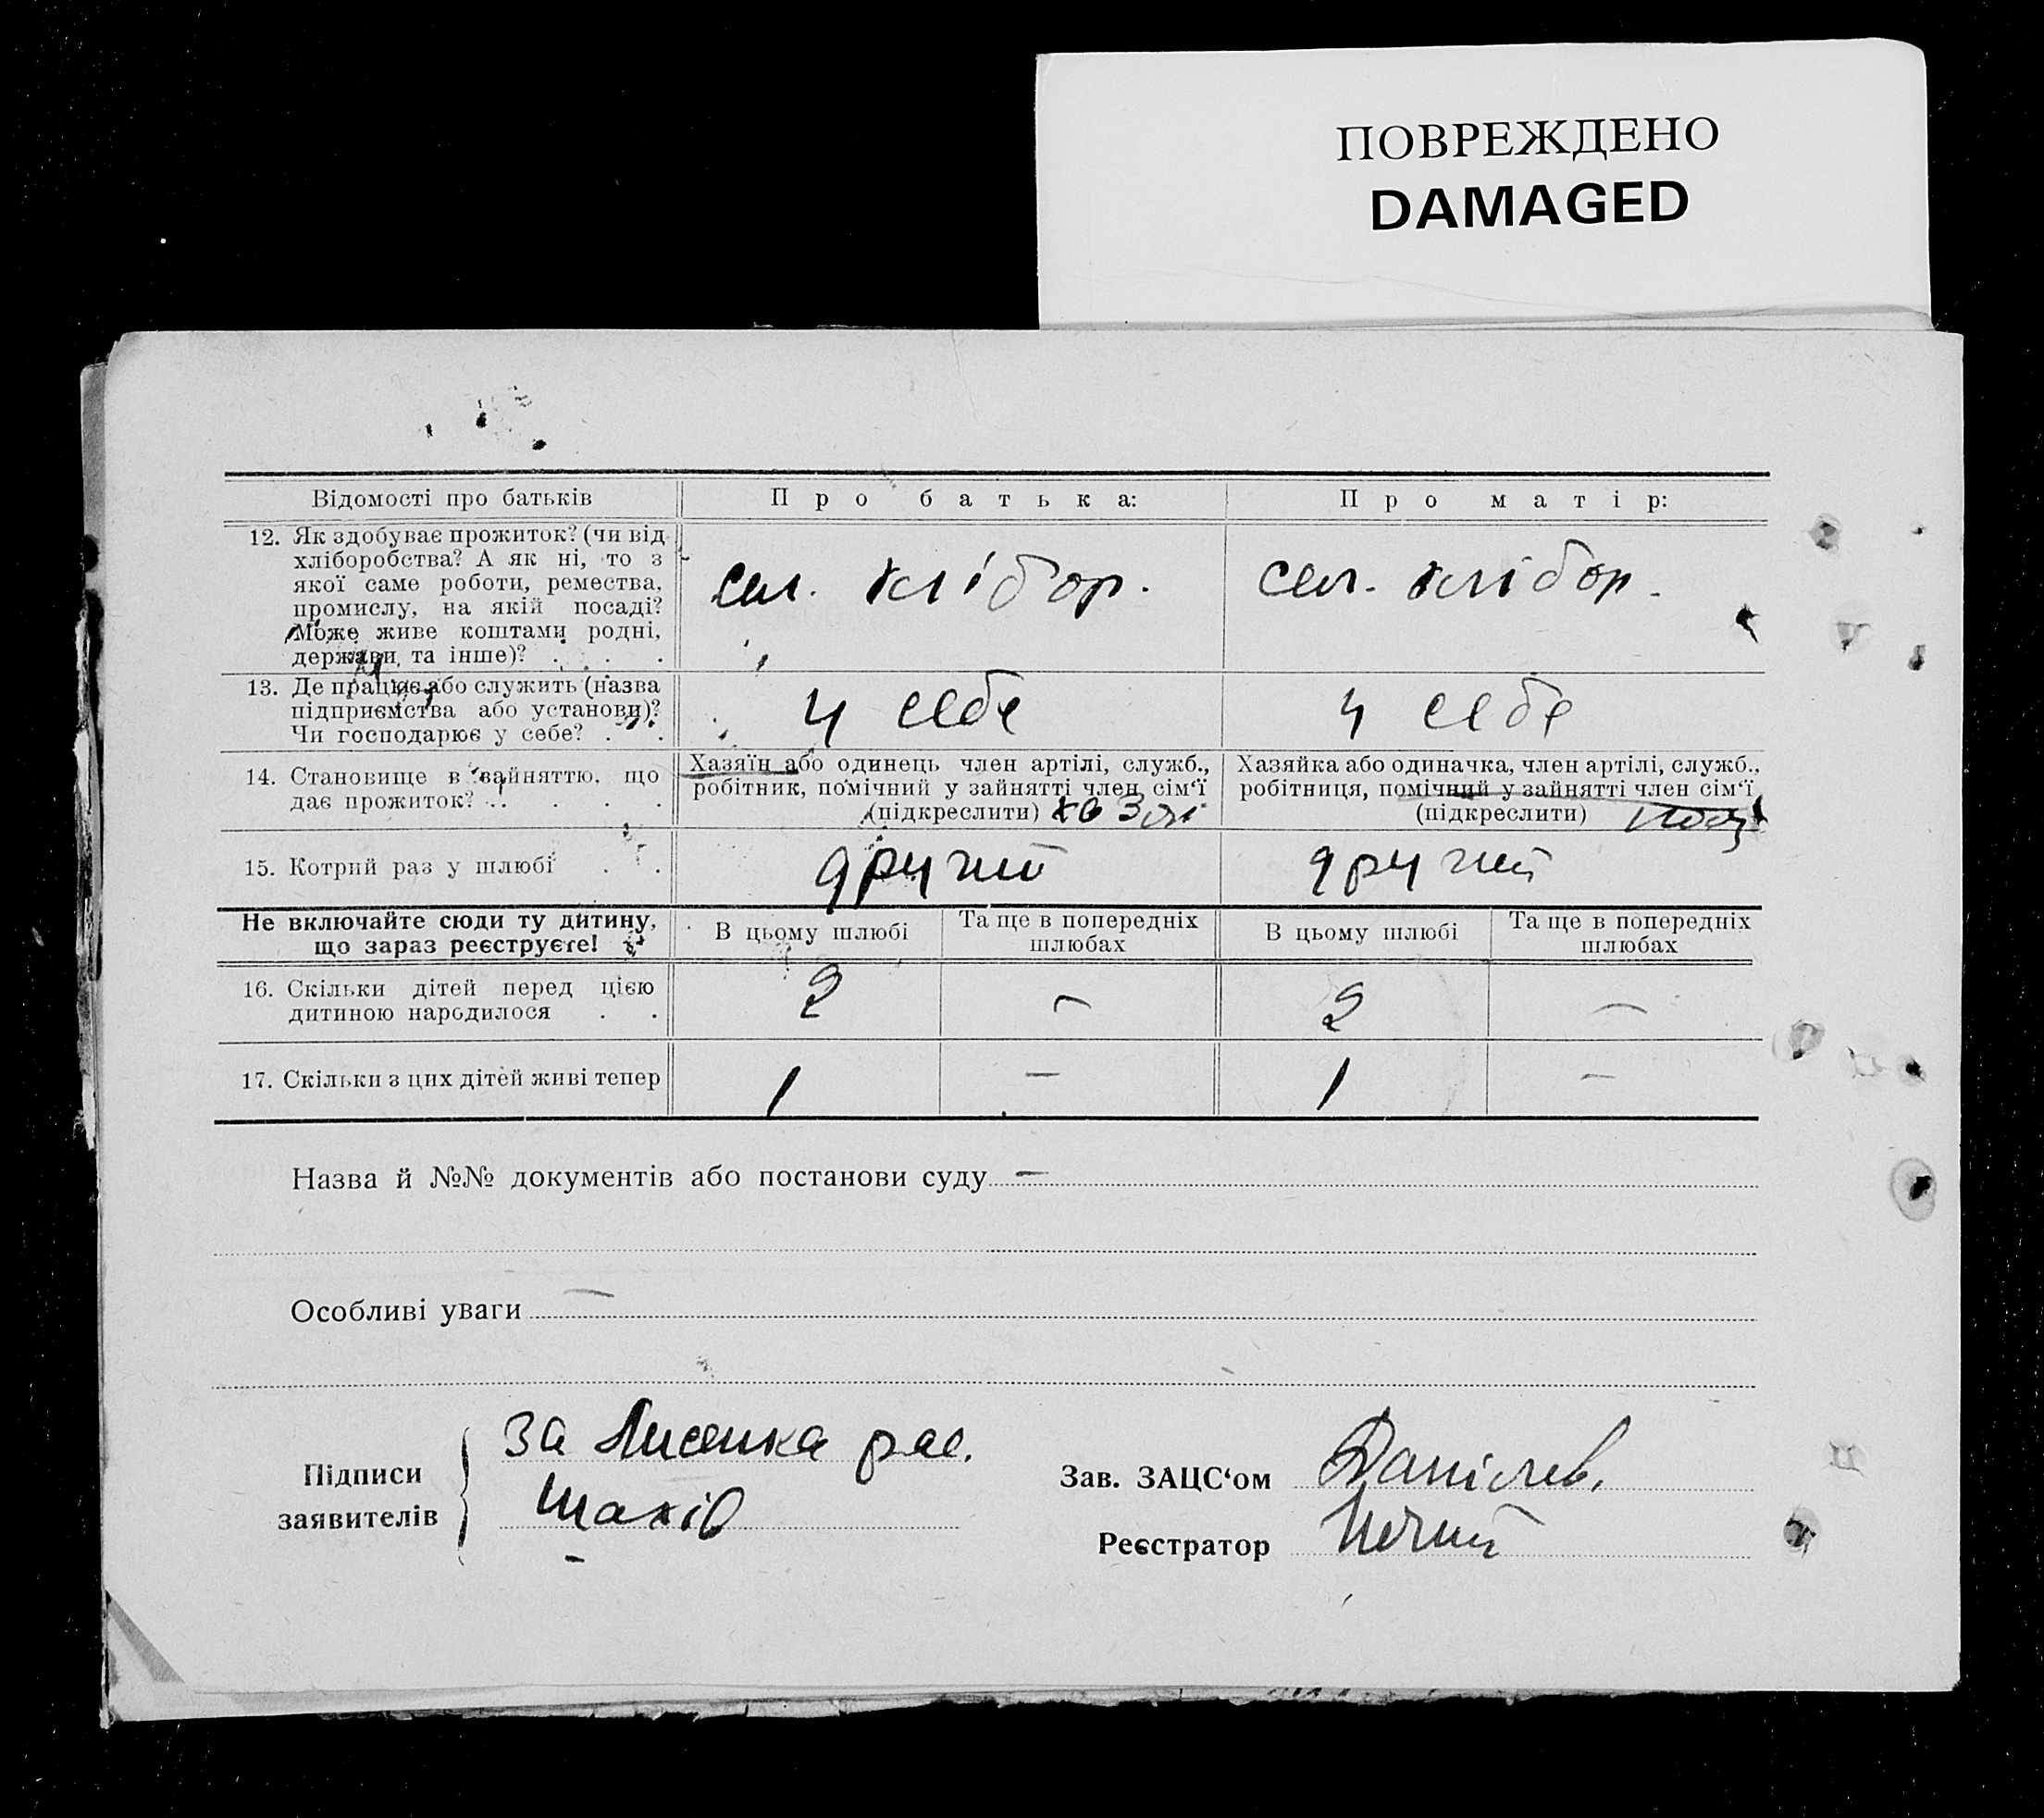 ПОВРЕЖДЕНО
DAMAGED
Відомості про батьків
Про батька:
Про матір:
12. Як здобуває прожиток? (чи від
хліборобства? А як ні, то з
якої саме роботи, ремества,
промислу, на якій посаді?
Може живе коштами родні,
держави, та інше)? . . .
сел. хлібор.
сел. хлібор.
13. Де працює або служить (назва
підприємства або установи)?
Чи господарює у себе? . . .
у себе
у себе
14. Становище в зайняттю, що
дає прожиток? . . . . .
Хазяїн або одинець член артілі, служб.,
робітник, помічний у зайнятті член сім'ї
(підкреслити)
Хазяйка або одиначка, член артілі, служб.,
робітниця, помічний у зайнятті член сім'ї
(підкреслити)
15. Котрий раз у шлюбі . .
другий
другий
Не включайте сюди ту дитину,
що зараз реєструєте!
В цьому шлюбі
Та ще в попередніх
шлюбах
В цьому шлюбі
Та ще в попередніх
шлюбах
16. Скільки дітей перед цією
дитиною народилося . .
2
—
2
—
17. Скільки з цих дітей живі тепер
1
—
1
—
Назва й №№ документів або постанови суду —
Особливі уваги —
Підписи
заявителів
за Лисенка рас.
Шахів
Зав. ЗАЦС'ом Данілев.
Реєстратор